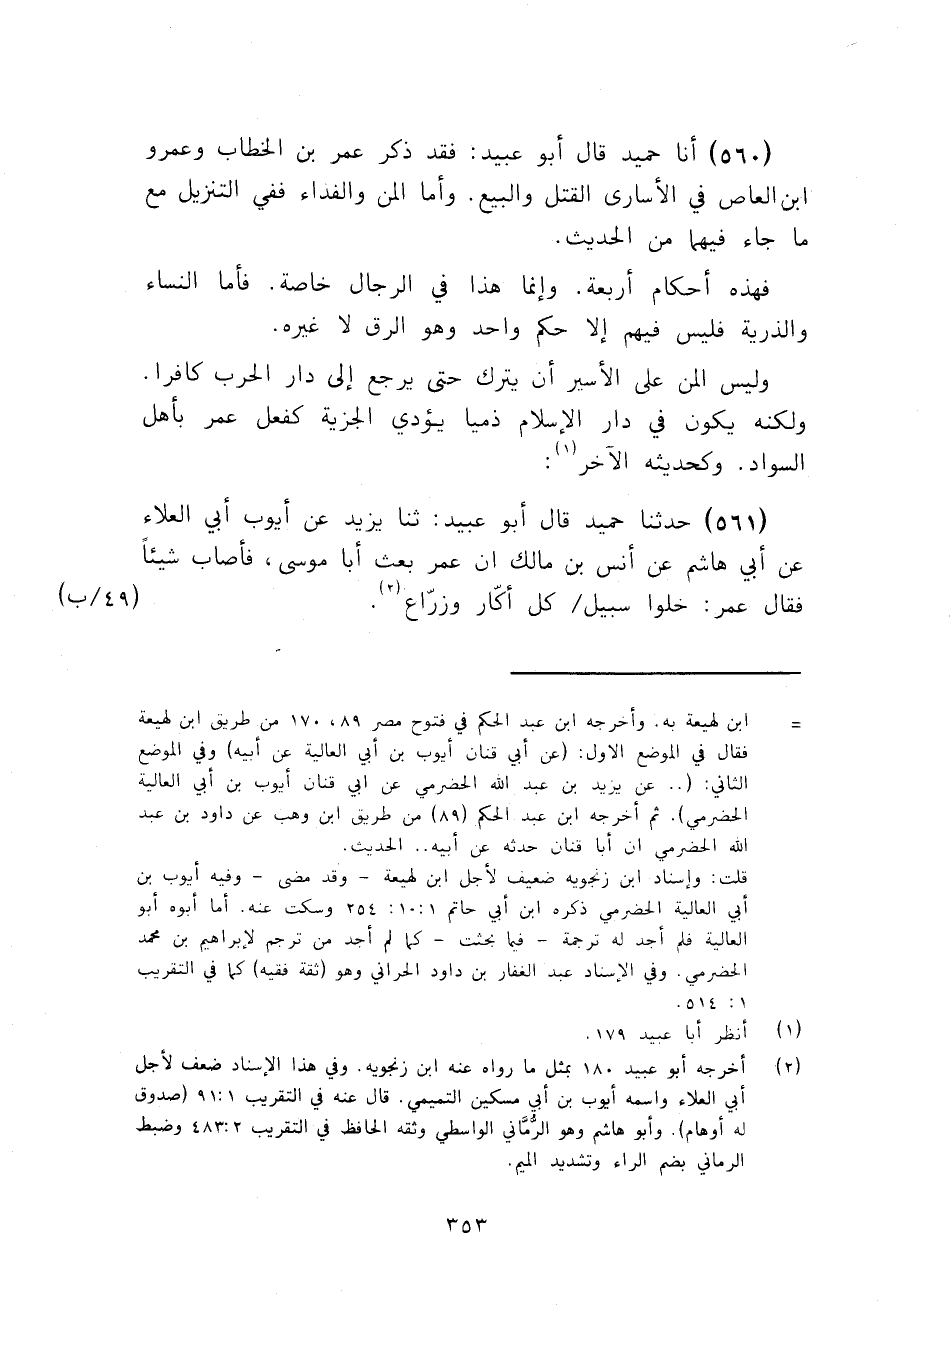 (٥٦٠) أنا حميد قال أبو عبيد: فقد ذكر عمر بن الخطاب وعمرو
ابن العاص في الأسارى القتل والبيع. وأما المن والفداء ففي التنزيل مع
ما جاء فيهما من الحديث.
فهذه أحكام أربعة. وإنما هذا في الرجال خاصة. فأما النساء
والذرية فليس فيهم إلا حكم واحد وهو الرق لا غيره.
وليس المن على الأسير أن يترك حتى يرجع إلى دار الحرب كافرا.
ولكنه يكون في دار الإسلام ذميا يؤدي الجزية كفعل عمر بأهل
السواد. وكحديثه الآخر(١):
(٥٦١) حدثنا حميد قال أبو عبيد: ثنا يزيد عن أيوب أبي العلاء
عن أبي هاشم عن أنس بن مالك ان عمر بعث أبا موسى، فأصاب شيئاً
فقال عمر: خلوا سبيل/ كل أكّار وزرّاع(٢). (٤٩/ب)
= ابن لهيعة به. وأخرجه ابن عبد الحكم في فتوح مصر ٨٩، ١٧٠ من طريق ابن لهيعة
فقال في الموضع الاول: (عن أبي قنان أيوب بن أبي العالية عن أبيه) وفي الموضع
الثاني: (.. عن يزيد بن عبد الله الحضرمي عن ابي قنان أيوب بن أبي العالية
الحضرمي). ثم أخرجه ابن عبد الحكم (٨٩) من طريق ابن وهب عن داود بن عبد
الله الحضرمي ان أبا قنان حدثه عن أبيه.. الحديث.
قلت: وإسناد ابن زنجويه ضعيف لأجل ابن لهيعة - وقد مضى - وفيه أيوب بن
أبي العالية الحضرمي ذكره ابن أبي حاتم ١:١٠: ٢٥٤ وسكت عنه. أما أبوه أبو
العالية فلم أجد له ترجمة - فيما بحثت - كما لم أجد من ترجم لإبراهيم بن محمد
الحضرمي. وفي الإسناد عبد الغفار بن داود الحراني وهو (ثقة فقيه) كما في التقريب
١: ٥١٤.
(١) أنظر أبا عبيد ١٧٩.
(٢) أخرجه أبو عبيد ١٨٠ بمثل ما رواه عنه ابن زنجويه. وفي هذا الإسناد ضعف لأجل
أبي العلاء واسمه أيوب بن أبي مسكين التميمي. قال عنه في التقريب ٩١:١ (صدوق
له أوهام). وأبو هاشم وهو الرُّمَّاني الواسطي وثقه الحافظ في التقريب ٤٨٣:٢ وضبط
الرماني بضم الراء وتشديد الميم.
٣٥٣